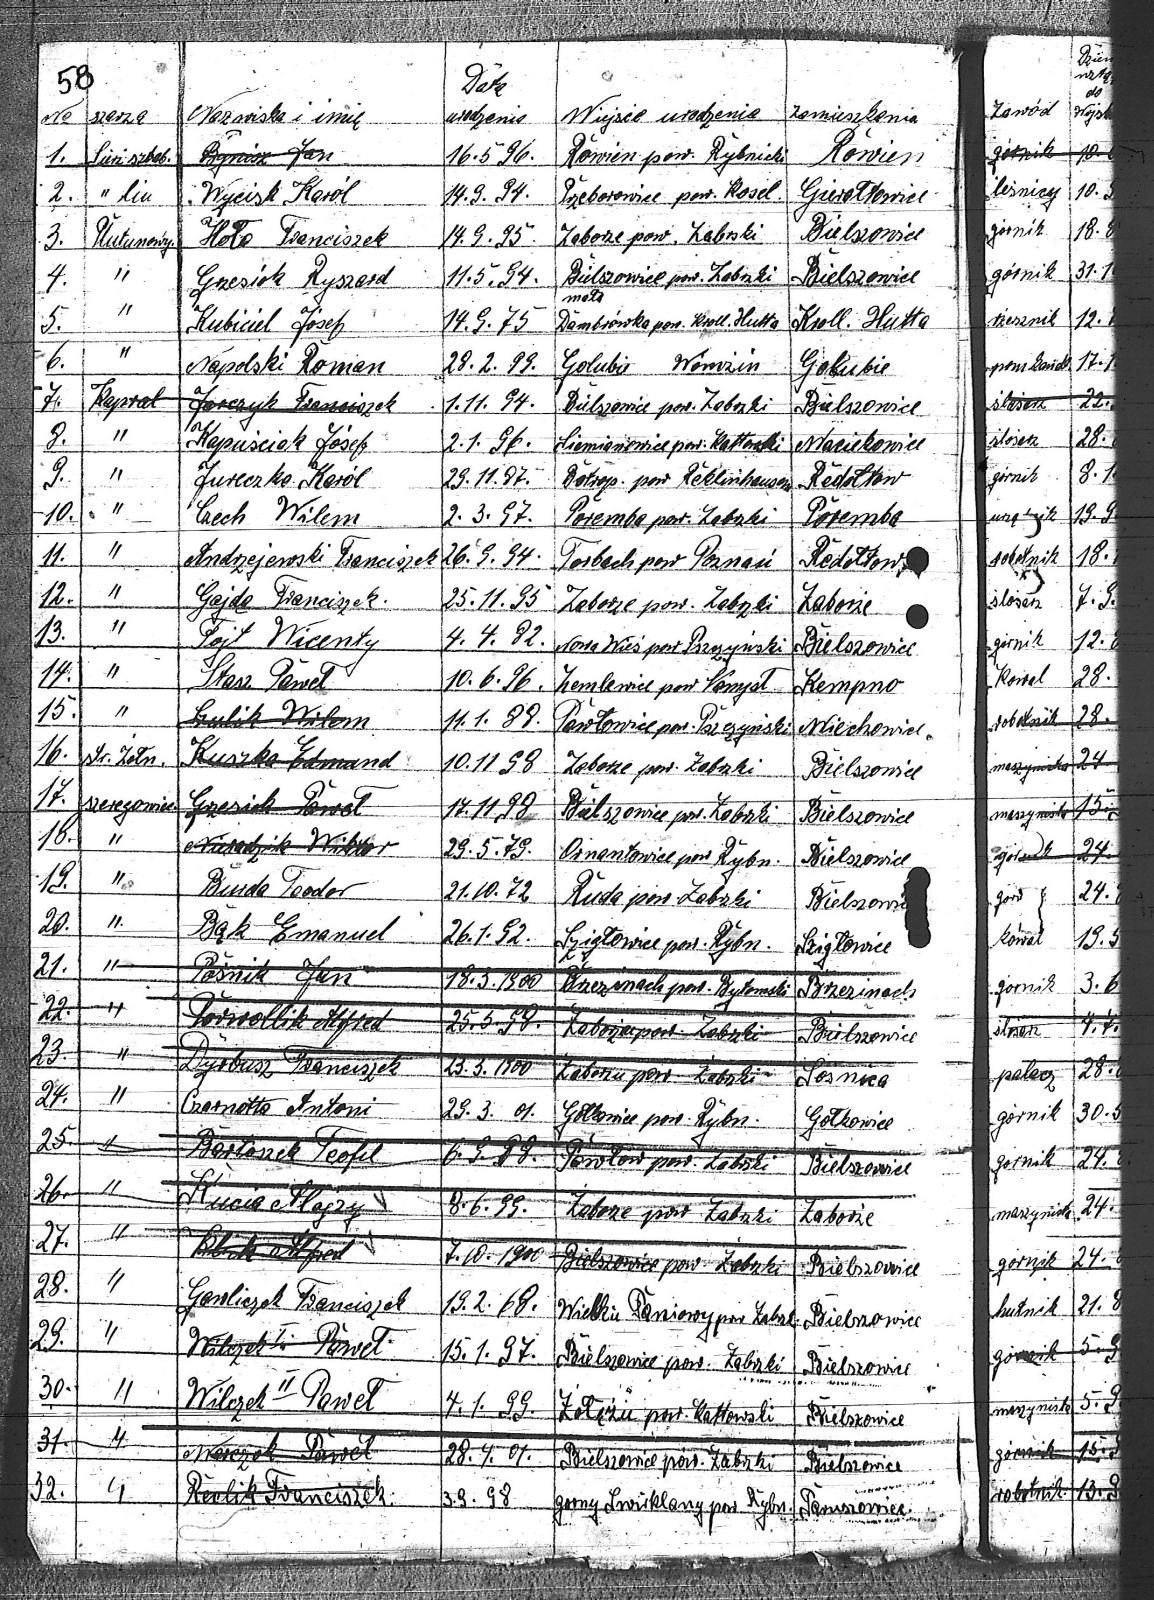 58
No szarża Nazwiska i imię Data urodzenia Miejsce urodzenia zamieszkania Zawód Dzień
1. Sierż. szbab. Jan 16.5.96. Rowien pow. Rybnicki Rowien górnik 10.
2. " Wycisk Karól 14.9.94. pow. Kosel. Gierałtowice leśniczy 10.
3. Hoła Franciszek 14.9.95. Zaborze pow. Zabrski Bielszowice górnik 18.8
4. " Grzesiok Ryszard 11.5.94. Bielszowice pow. Zabrski Bielszowice górnik 31.1
5. " Kubiciel Józef 14.9.75 mała Dambrówka pow. Kroll. Hutta Kroll. Hutta rzeznik 12.
6. " Napolski Roman 28.2.99. Golubie Golubie 17.1
7. Kapral Jarczyk Franciszek 1.11.94. Bielszowice pow. Zabrski Bielszowice slósarz 22.
8. " Kapuściok Józef 2.1.96. Siemianowice pow. Kattowski Maciekowice slósarz 28.
9. " Jureczka Karól 29.11.87. Botrop. pow Reklinhausen Redołtow górnik 8.1
10. " Czech Wilem 2.3.97. Poremba pow. Zabrski Poremba 19.9
11. " Andrzejewski Franciszek 26.9.94. Torbach pow Poznań Redołtow robotnik 18.
12. " Gajda Franciszek. 25.11.95 Zaborze pow. Zabrski Zaborze slósarz 7.9.
13. " Pojt Wicenty 4.4.82. Nowa Wieś pow Pszczyński Bielszowice górnik 12.
14. " Stasz Paweł 10.6.96. pow Kempno Kowal 28.
15. " Wilem 11.1.88. Pawłowice pow. Pszczyński Miechowice. robotnik 28.
16. st. Żołn. Kuszka Edmund 10.11 98 Zaborze pow. Zabrski Bielszowice maszynista 24
17. szeregowiec Grzesiok Paweł 17.11 98 Bielszowice pow. Zabrski Bielszowice maszynista 15.
18. " Wiktor 29.5.79. Ornantowice pow Rybn. Bielszowice górnik 24.
19. " Buda Teodor 21.10.72 Ruda pow. Zabrski Bielszowice górn 24.
20. " Bąk Emanuel 26.1.92. Szigłowice pow. Rybn. Szigłowice kowal 19.5
21. " Pośnik Jan 18.3.1900 Brzezinach pow. Bytomski Brzezinach górnik 3.6
22. " Porwollik Alfred 25.5.98. Zaborze pow. Zabrski Bielszowice slósarz 4.7.
23 " Dyrbusz Franciszek 23.3.1900 Zaborzu pow. Zabrski Sośnica palacz 28.
24. " Czarnotta Antoni 29.3.01. Gołkowice pow. Rybn. Gołkowice górnik 30.5
25. " Bartoszek Teofil 6.9.98. Pawłow pow. Zabrski Bielszowice górnik 24.
26. " Kucia Alojzy 8.6.99. Zaborze pow Zabrski Zaborze maszynista 24.
27. " Alfred 7.10.1900 Bielszowice pow Zabrski Bielszowice górnik 24.
28. " Gawliczek Franciszek 19.2.68. Wielkiu Paniowy pow Zabrz. Bielszowice hutnik 21.8
29. " Wilczek I Paweł 15.1.97. Bielszowice pow. Zabrski Bielszowice górnik 5.9
30. " Wilczek II Paweł 4.1.99. pow. Kattowski Bielszowice maszynista 5.9.
31. " Paweł 28.4.01. Bielszowice pow. Zabrski Bielszowice górnik 15.
32. " Rerlik Franciszek. 3.9.98 gorny Swirklany pow. Rybn. Paniszowice. robotnik 13.9